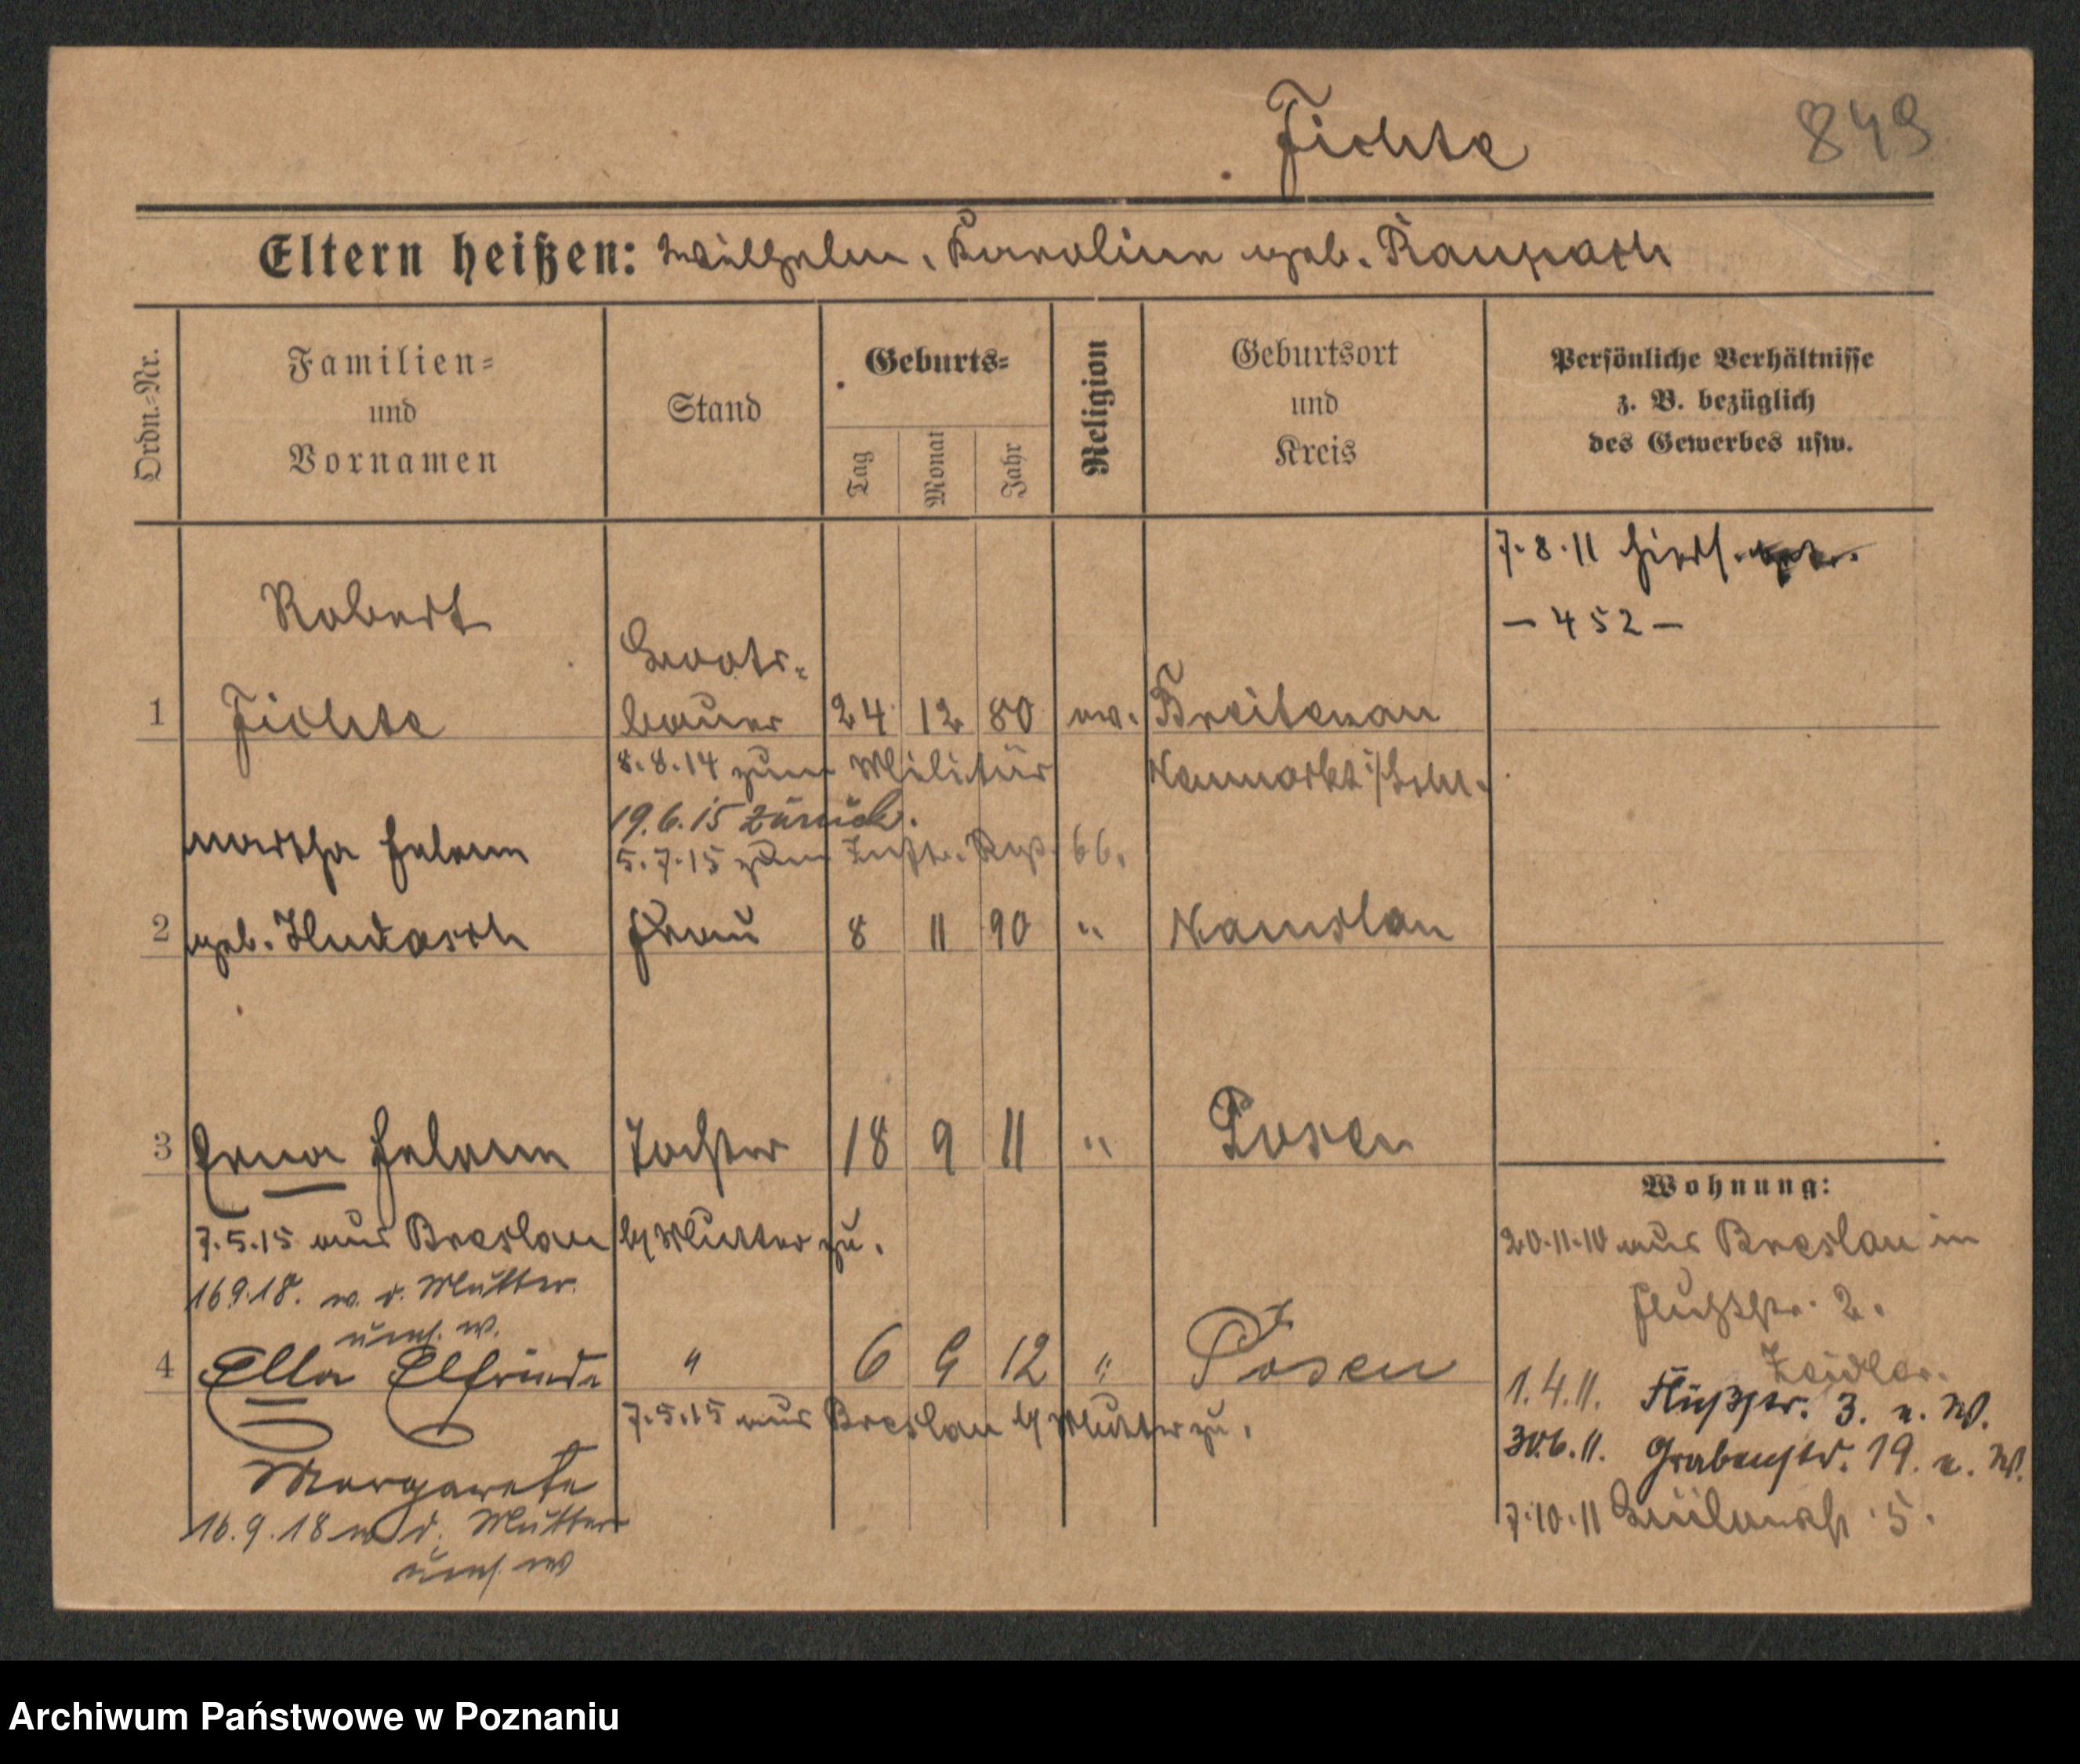 Fichte 849
Eltern heißen: Wilhelm, Karoline geb. Raupach
Ordn.=Nr.
Familien=
und
Vornamen
Stand
Geburts=
Tag
Monat
Jahr
Religion
Geburtsort
und
Kreis
Persönliche Verhältnisse
z. B. bezüglich
des Gewerbes usw.
7.8.11
— 452 —
Robert
Boots=
1 Fichte bauer 24 12 80 ev. Breitenau
8.8.14 zum Militär Neumarkt i/Schl.
19.6.15 zurück.
5.7.15 zum Inftr. Rgt. 66.
Martha Helene
2 geb. Hudasch Frau 8 11 90 " Namslau
3 Erna Helene Tochter 18 9 11 " Posen
Wohnung:
7.5.15 aus Breslau b/ Mutter zu.
20.11.10 aus Breslau in
16 9.18. m. d. Mutter
Flußstr. 2.
umf. w.
Zeidler.
4 Ella Elfriede " 6 9 12 " Posen
1.4.11. Flußstr. 3. u. W.
7.5.15 aus Breslau b/ Mutter zu.
30.6.11. Grabenstr. 19. u. W.
Margarete
7.10.11 5.
16.9.18 m d. Mutter
umf. w
Archiwum Państwowe w Poznaniu